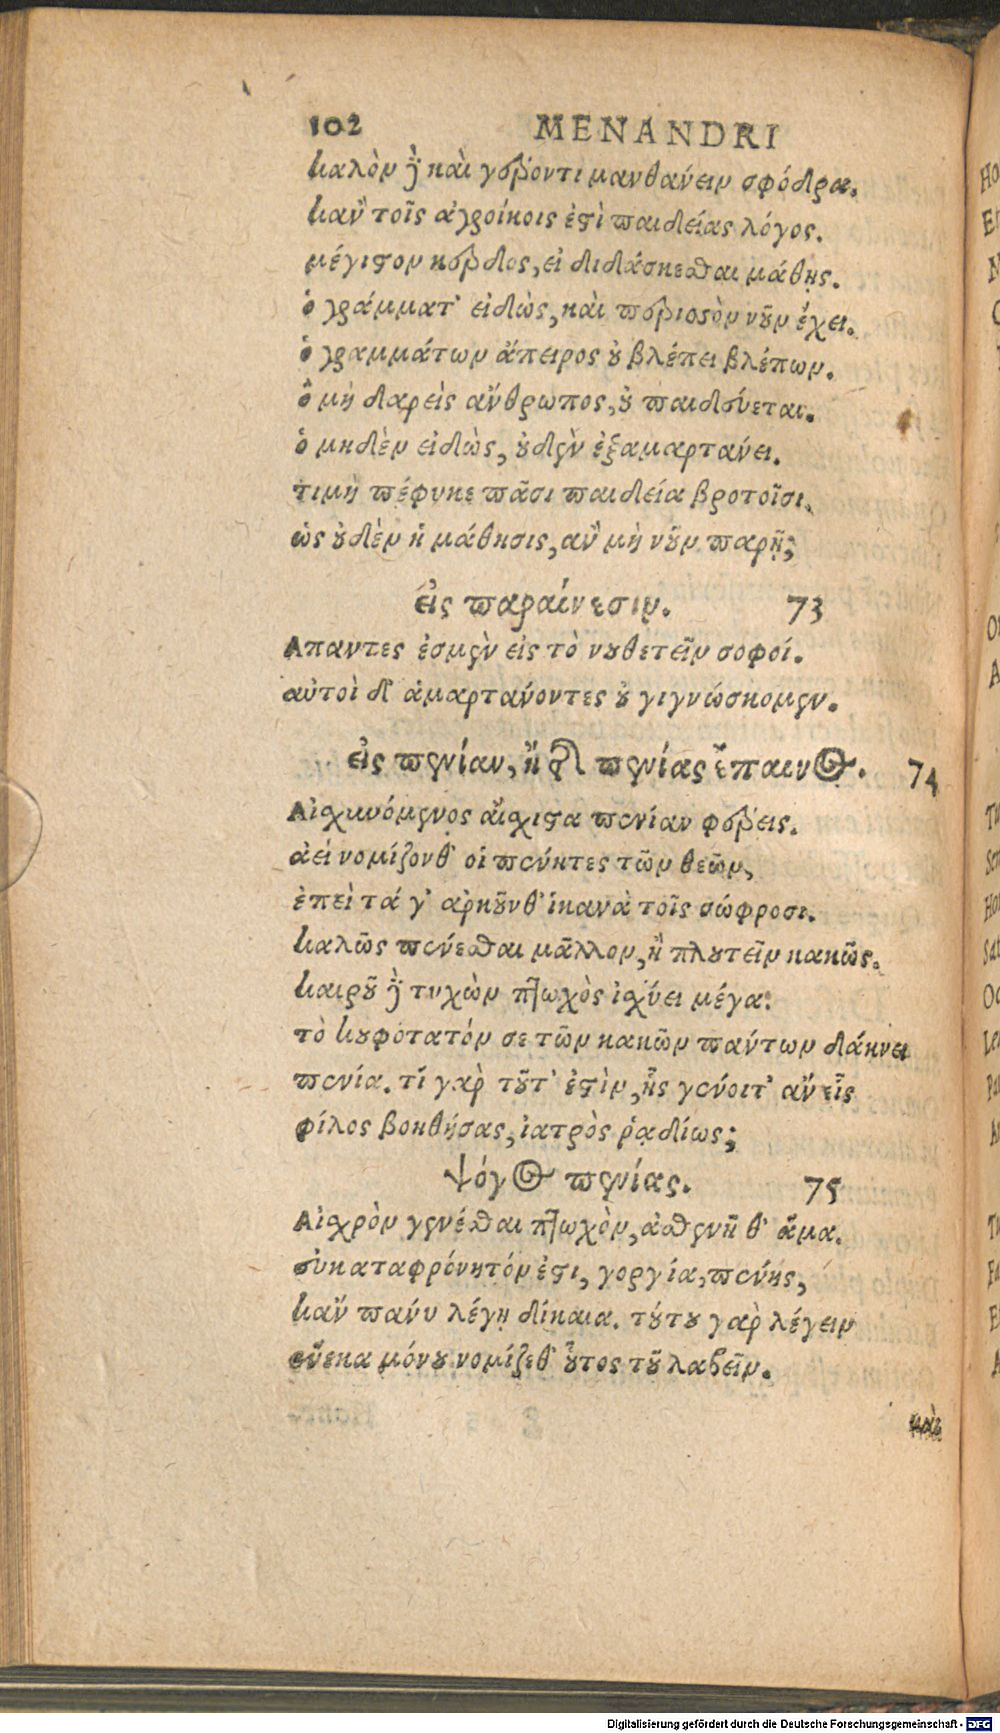 102 MENANDRI
καλὸν δὲ καὶ γέροντι μανθάνειν σφόδρα.
κἀν τοῖς ἀγροίκοις ἐστὶ παιδείας λόγος.
μέγιστον κέρδος, εἰ διδάσκεσθαι μάθῃς.
ὁ γράμματ' εἰδὼς, καὶ περισσὸν νοῦν ἔχει.
ὁ γραμμάτων ἄπειρος οὐ βλέπει βλέπων.
ὁ μὴ δαρεὶς ἄνθρωπος, οὐ παιδεύεται.
ὁ μηδὲν εἰδὼς, οὐδὲν ἐξαμαρτάνει.
τιμὴ πέφυκε πᾶσι παιδεία βροτοῖσι.
ὡς οὐδὲν ἡ μάθησις, ἂν μὴ νοῦν παρῇ;
εἰς παραίνεσιν. 73
Απαντες ἐσμὲν εἰς τὸ νουθετεῖν σοφοί.
αὐτοὶ δ' ἁμαρτάνοντες οὐ γιγνώσκομεν.
εἰς πενίαν, ἢ τῆς πενίας ἔπαινος. 74
Αἰσχυνόμενος αἴσχιστα πενίαν φέρεις.
ἀεὶ νομίζονθ' οἱ πένητες τῶν θεῶν,
ἐπεὶ τά γ' ἀρκοῦνθ' ἱκανὰ τοῖς σώφροσι.
καλῶς πένεσθαι μᾶλλον, ἢ πλουτεῖν κακῶς.
καιροῦ δὲ τυχὼν πτωχὸς ἰσχύει μέγα.
τὸ κουφότατόν σε τῶν κακῶν πάντων δάκνει
πενία. τί γὰρ τοῦτ' ἐστὶν, ἧς γένοιτ' ἂν εἷς
φίλος βοηθήσας, ἰατρὸς ῥᾳδίως;
ψόγος πενίας. 75
Αἰσχρὸν γενέσθαι πτωχὸν, ἀσθενῆ θ' ἅμα.
συκαταφρόνητόν ἐστι, γοργία, πένης,
κἂν πάνυ λέγῃ δίκαια. τούτου γὰρ λέγειν
εὕεκα μόνου νομίζεθ' οὗτος τοῦ λαβεῖν.
καὶ
Digitalisierung gefördert durch die Deutsche Forschungsgemeinschaft - DFG